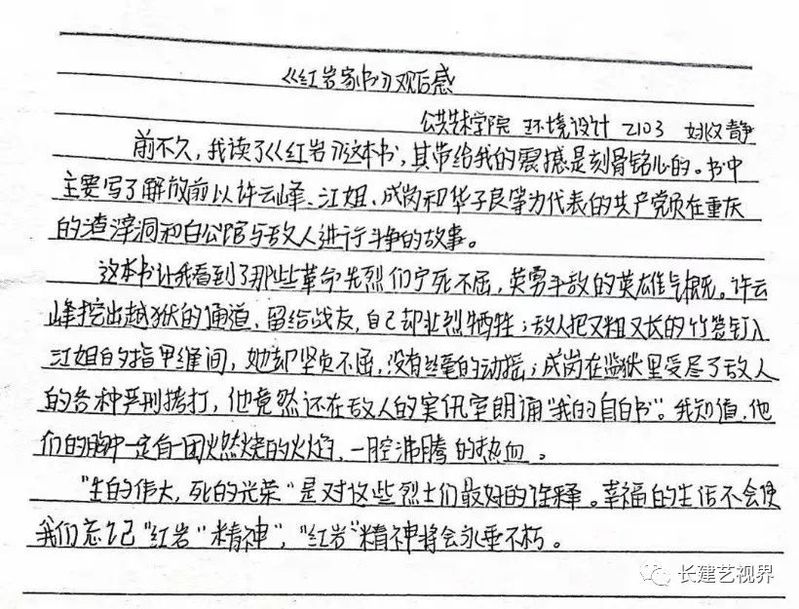 《红岩家书》观后感
公共艺术学院 环境设计 2103 姚汉静
前不久，我读了《红岩》这本书，其带给我的震撼是刻骨铭心的。书中
主要写了解放前以许云峰、江姐、成岗和华子良等为代表的共产党员在重庆
的渣滓洞和白公馆与敌人进行斗争的故事。
这本书让我看到了那些革命先烈们宁死不屈，英勇斗敌的英雄气概。许云
峰挖出越狱的通道，留给战友，自己却壮烈牺牲；敌人把又粗又长的竹签钉入
江姐的指甲缝间，她却坚贞不屈，没有丝毫的动摇；成岗在监狱里受尽了敌人
的各种严刑拷打，他竟然还在敌人的审讯室朗诵“我的自白书”。我知道，他
们的胸中一定有一团火燃烧的火焰，一腔沸腾的热血。
“生的伟大，死的光荣”是对这些烈士们最好的诠释。幸福的生活不会使
我们忘记“红岩”精神”，“红岩”精神将会永垂不朽。
长建艺视界